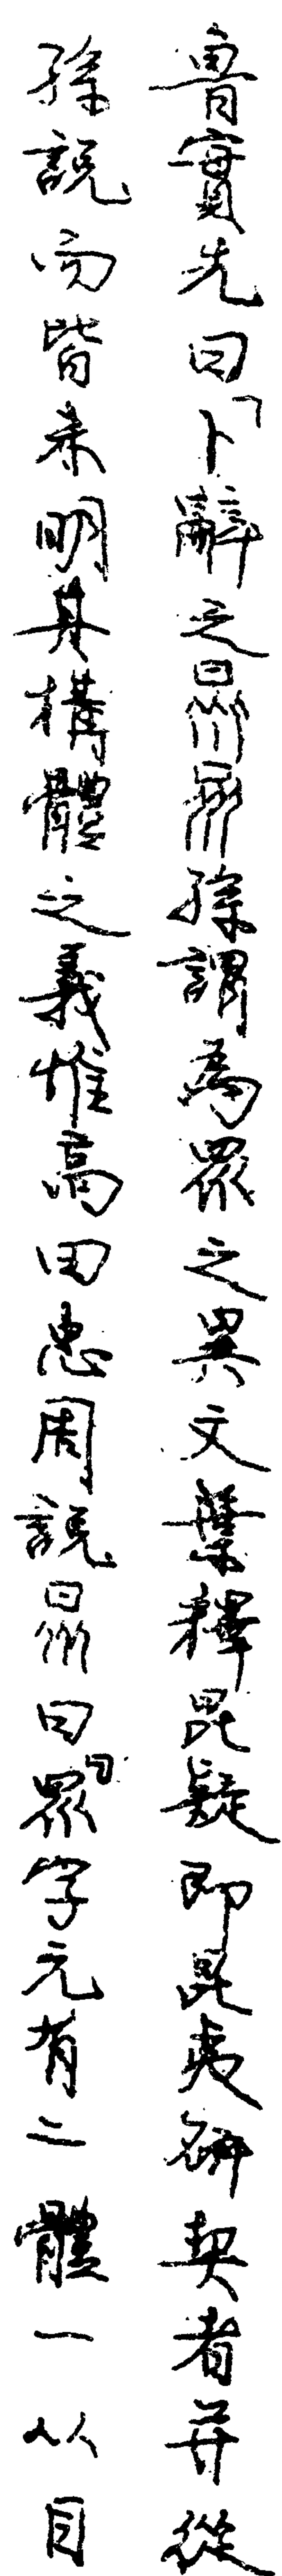 魯實先曰「卜辭之𣅔𠂢孫謂爲眾之異文葉釋昆疑即昆夷研契者并從
孫說而皆未明其構體之義惟高田忠周說𣅔曰『眾字元有二體一以目